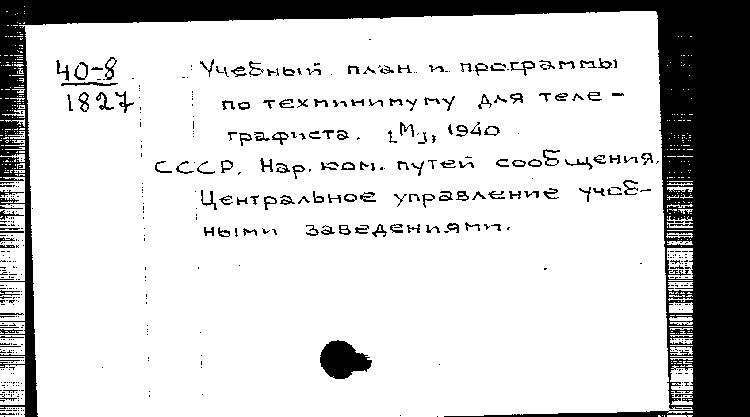 40-8
1827
Учебный план и программы
по техминимуму для теле-
графиста. [М], 1940
СССР. Нар. ком. путей сообщения.
Центральное управление учеб-
ными заведениями.